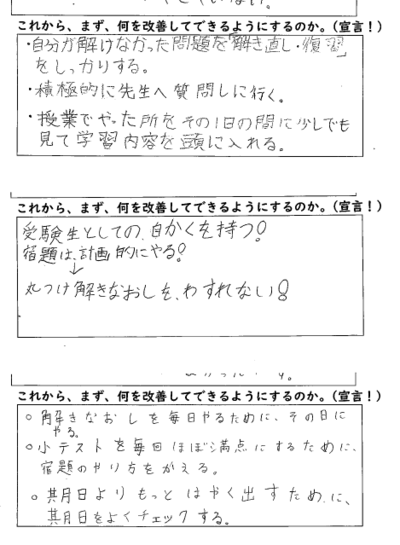 これから、まず、何を改善してできるようにするのか。（宣言！）
・自分が解けなかった問題を「解き直し・復習」
をしっかりする。
・積極的に先生へ質問しに行く。
・授業でやった所をその1日の間に少しでも
見て学習内容を頭に入れる。
これから、まず、何を改善してできるようにするのか。（宣言！）
受験生としての、自かくを持つ!
宿題は、計画的にやる!
↓
丸つけ解きなおしを、わすれない!
これから、まず、何を改善してできるようにするのか。（宣言！）
○解きなおしを毎日やるために、その日に
やる。
○小テストを毎回ほぼ満点にするために、
宿題のやり方をかえる。
○其月日よりもっとはやく出すために、
其月日をよくチェックする。